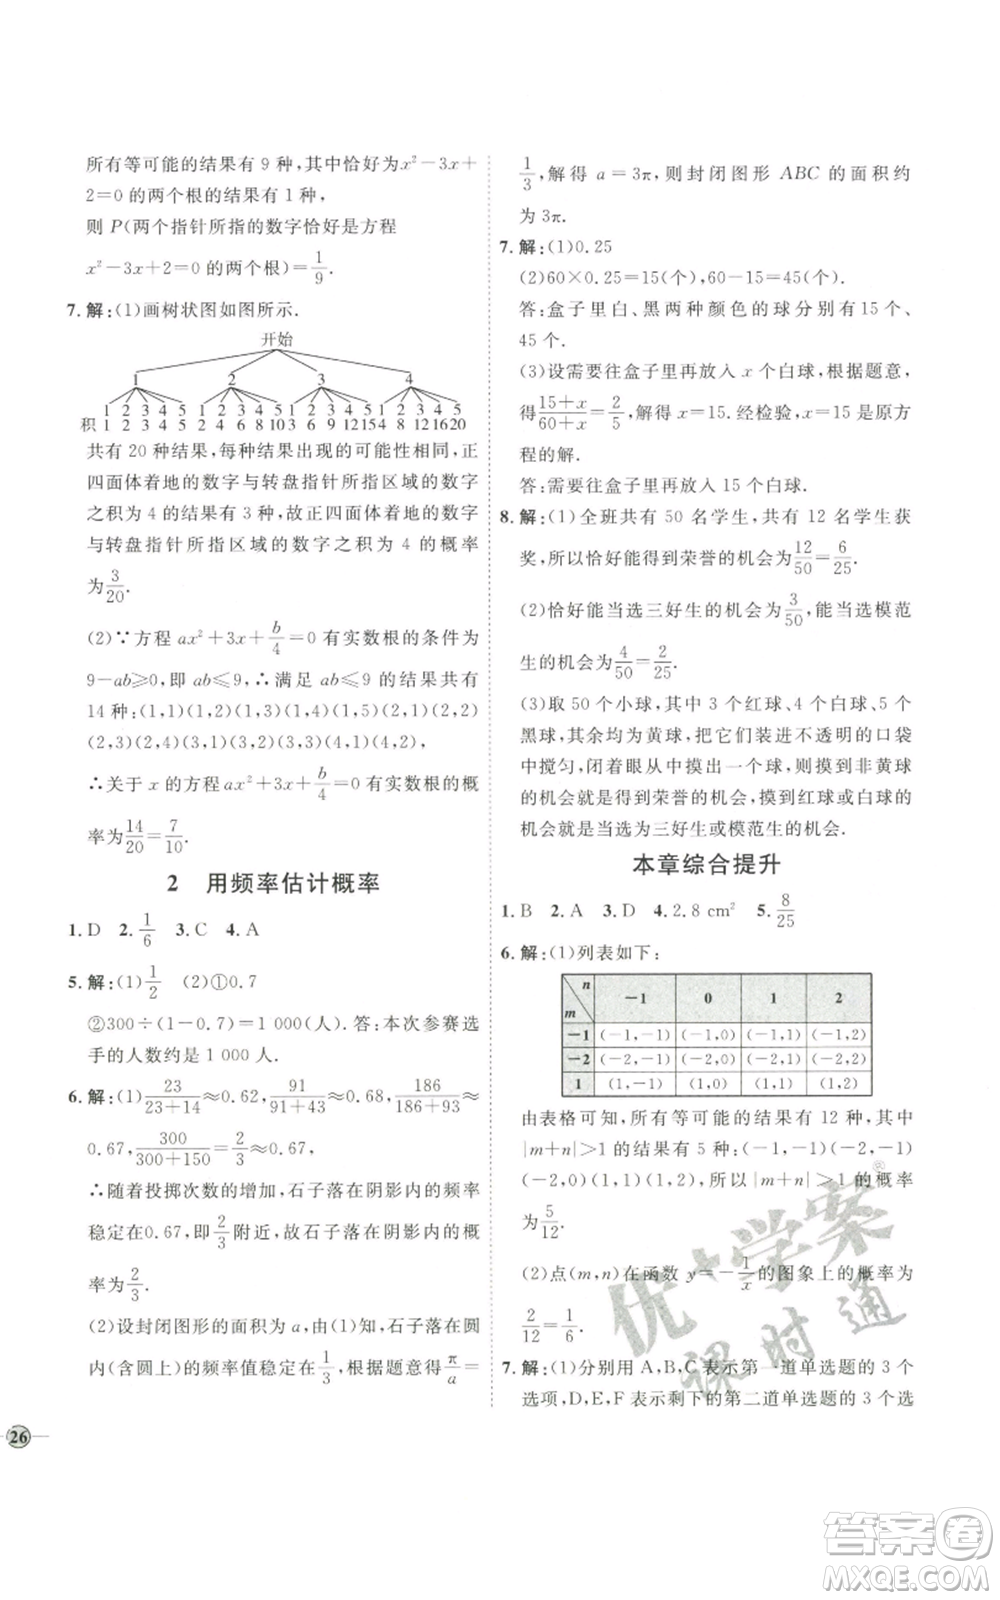 所有等可能的结果有 9 种,其中恰好为 x²－3x＋
2＝0 的两个根的结果有 1 种,
则 P(两个指针所指的数字恰好是方程
x²－3x＋2＝0 的两个根)＝1/9.
7. 解:(1)画树状图如图所示.
开始
1 2 3 4
1 2 3 4 5 1 2 3 4 5 1 2 3 4 5 1 2 3 4 5
积 1 2 3 4 5 2 4 6 8 10 3 6 9 12 15 4 8 12 16 20
共有 20 种结果,每种结果出现的可能性相同,正
四面体着地的数字与转盘指针所指区域的数字
之积为 4 的结果有 3 种,故正四面体着地的数字
与转盘指针所指区域的数字之积为 4 的概率
为3/20.
(2)∵方程 ax²＋3x＋b/4＝0 有实数根的条件为
9－ab≥0,即 ab≤9,∴满足 ab≤9 的结果共有
14 种:(1,1)(1,2)(1,3)(1,4)(1,5)(2,1)(2,2)
(2,3)(2,4)(3,1)(3,2)(3,3)(4,1)(4,2),
∴关于 x 的方程 ax²＋3x＋b/4＝0 有实数根的概
率为14/20＝7/10.
2 用频率估计概率
1. D 2. 1/6 3. C 4. A
5. 解:(1)1/2 (2)①0.7
②300÷(1－0.7)＝1 000(人). 答:本次参赛选
手的人数约是 1 000 人.
6. 解:(1)23/(23＋14)≈0.62, 91/(91＋43)≈0.68, 186/(186＋93)≈
0.67, 300/(300＋150)＝2/3≈0.67,
∴随着投掷次数的增加,石子落在阴影内的频率
稳定在2/3附近,故石子落在阴影内的概
率为2/3.
(2)设封闭图形的面积为 a,根据题意,石子落在圆
内(含圆上)的频率值稳定在1/3,根据题意得π/a＝
26
1/3,解得 a＝3π,则封闭图形 ABC 的面积约
为 3π.
7. 解:(1)0.25
(2)60×0.25＝15(个),60－15＝45(个).
答:盒子里白、黑两种颜色的球分别有 15 个、
45 个.
(3)设需要往盒子里再放入 x 个白球.根据题意,
得(15＋x)/(60＋x)＝2/5,解得 x＝15. 经检验,x＝15 是原方
程的解.
答:需要往盒子里再放入 15 个白球.
8. 解:(1)全班共有 50 名学生,共有 12 名学生获
奖,所以恰好能得到荣誉的机会为12/50＝6/25.
(2)恰好能当选三好生的机会为3/50,能当选模范
生的机会为4/50＝2/25.
(3)取 50 个小球,其中 3 个红球、4 个白球、5 个
黑球,其余均为黄球,把它们装进不透明的口袋
中搅匀,闭着眼从中摸出一个球,则摸到非黄球
的机会就是得到荣誉的机会,摸到红球或白球的
机会就是当选为三好生或模范生的机会.
本章综合提升
1. B 2. A 3. D 4. 2.8 cm² 5. 8/25
6. 解:(1)列表如下:
n －1 0 1 2
m
－1 (－1,－1) (－1,0) (－1,1) (－1,2)
－2 (－2,－1) (－2,0) (－2,1) (－2,2)
1 (1,－1) (1,0) (1,1) (1,2)
由表格可知,所有等可能的结果有 12 种,其中
|m＋n|＞1 的结果有 5 种:(－1,－1)(－2,－1)
(－2,0)(1,1)(1,2),所以|m＋n|＞1 的概率
为5/12.
(2)点(m,n)在函数 y＝－1/x的图象上的概率为
2/12＝1/6.
7. 解:(1)分别用 A,B,C 表示第一道单选题的 3 个
选项,D,E,F 表示剩下的第二道单选题的 3 个选
优+学案
课时通
答案卷
MXQE.COM